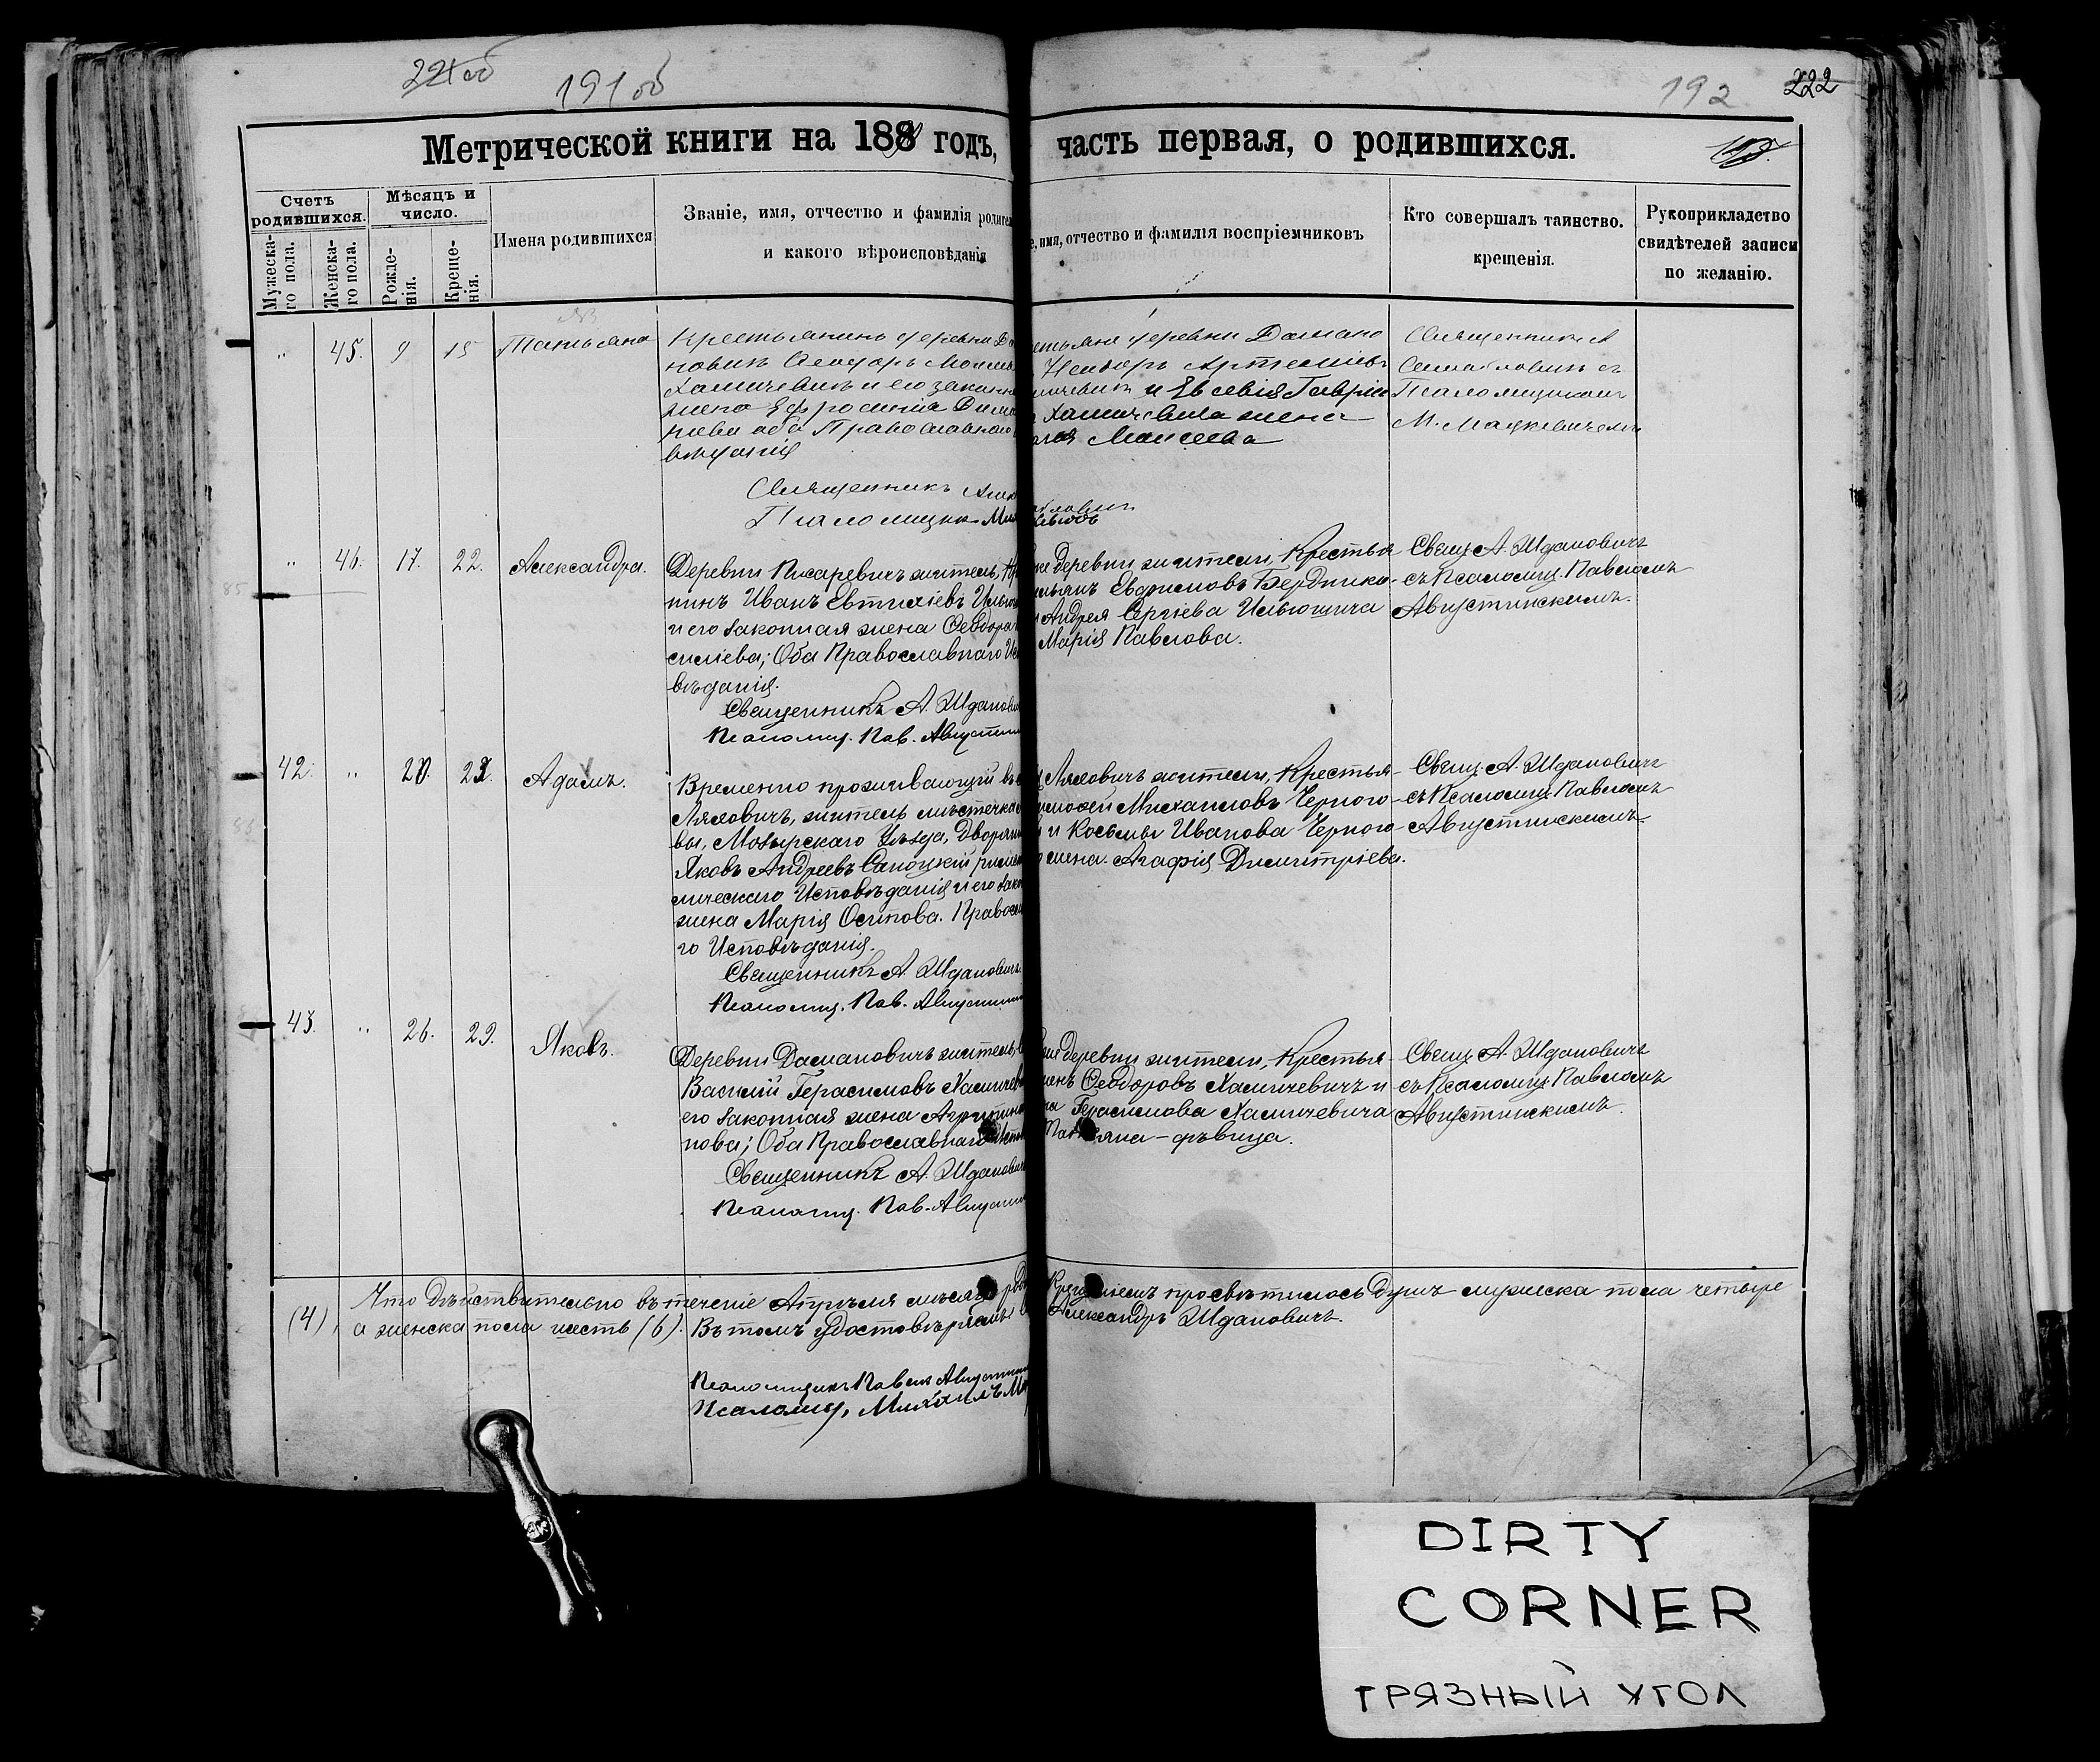 221 об
191 об
192
222
Метрической книги на 188 годъ,
часть первая, о родившихся.
Счетъ родившихся.
Мѣсяцъ и число.
Мужеска-го пола.
Женска-го пола.
Рожде-нія.
Креще-нія.
Имена родившихся
Званіе, имя, отчество и фамилія родител
и какого вѣроисповѣданія
е, имя, отчество и фамилія воспріемниковъ
Кто совершалъ таинство.
крещенія.
Рукоприкладство
свидѣтелей записи
по желанію.
" 45. 9 15 Татьяна
Крестьянинъ деревни Да
новичъ Ѳеодоръ Моисе
Хамичевичъ и его законна
жена Ефросинія
ева оба Православнаго
вѣданія
Священникъ
Псаломщик
етьяне деревни Дамано
Артеміевъ
мичевичъ и Евсевія Гаврии
Хамичевича жена
Моисеева
Священникъ А
съ
Псаломщикомъ
М. Мацкевичемъ
" 46. 17. 22. Александра.
Деревни Писаревичъ житель, Кре
нинъ Иванъ Евтихіевъ Ильюш
и его законная жена Ѳеодора
силіева; Оба Православнаго Ис
вѣданія.
Священникъ А. Ждановичъ
Псаломщ. Пав. Августин
же деревни жители, Крестья
Евфимовъ Бердник
Андрея Сергіева Ильюшича
Марія Павлова.
Свящ. А. Ждановичъ
съ Псаломщ. Павломъ
Августинскимъ.
42. " 20. 22. Адамъ.
Временно проживающій въ
Ляховичъ, житель мѣстечка
вы, Мозырскаго Уѣзда, Дворяни
Яковъ Андреевъ Сапоцкій римско
лическаго Исповѣданія и его зако
жена Марія Осипова. Правосла
го Исповѣданія.
Священникъ А. Ждановичъ
Псаломщ. Пав. Августин
Ляховичъ жители, Крестья-
имоѳей Михаиловъ Черного-
и Космы Иванова Черного
жена Агафія Димитріева.
Свящ. А. Ждановичъ
съ Псаломщ. Павломъ
Августинскимъ.
43. " 26. 29. Яковъ.
Деревни Дамановичъ житель,
Василій Герасимовъ Хамичеви
его законная жена Агрипина
пова; Оба Православнаго Испо
Священникъ А. Ждановичъ
Псаломщ. Пав. Августин
деревни жители, Крестья-
Ѳеодоровъ Хамичевичъ и
на Герасимова Хамичевича
Татьяна - дѣвица.
Свящ. А. Ждановичъ
съ Псаломщ. Павломъ
Августинскимъ.
Что дѣйствительно въ теченіе Апрѣля мѣсяца Крещеніемъ просвѣтилось душъ мужеска пола четыре
(4), а женска пола шесть (6). Въ томъ удостовѣряемъ Александръ Ждановичъ.
Псаломщикъ Павелъ Августин
Псаломщ. Михаилъ Ма
DIRTY
CORNER
ГРЯЗНЫЙ УГОЛ